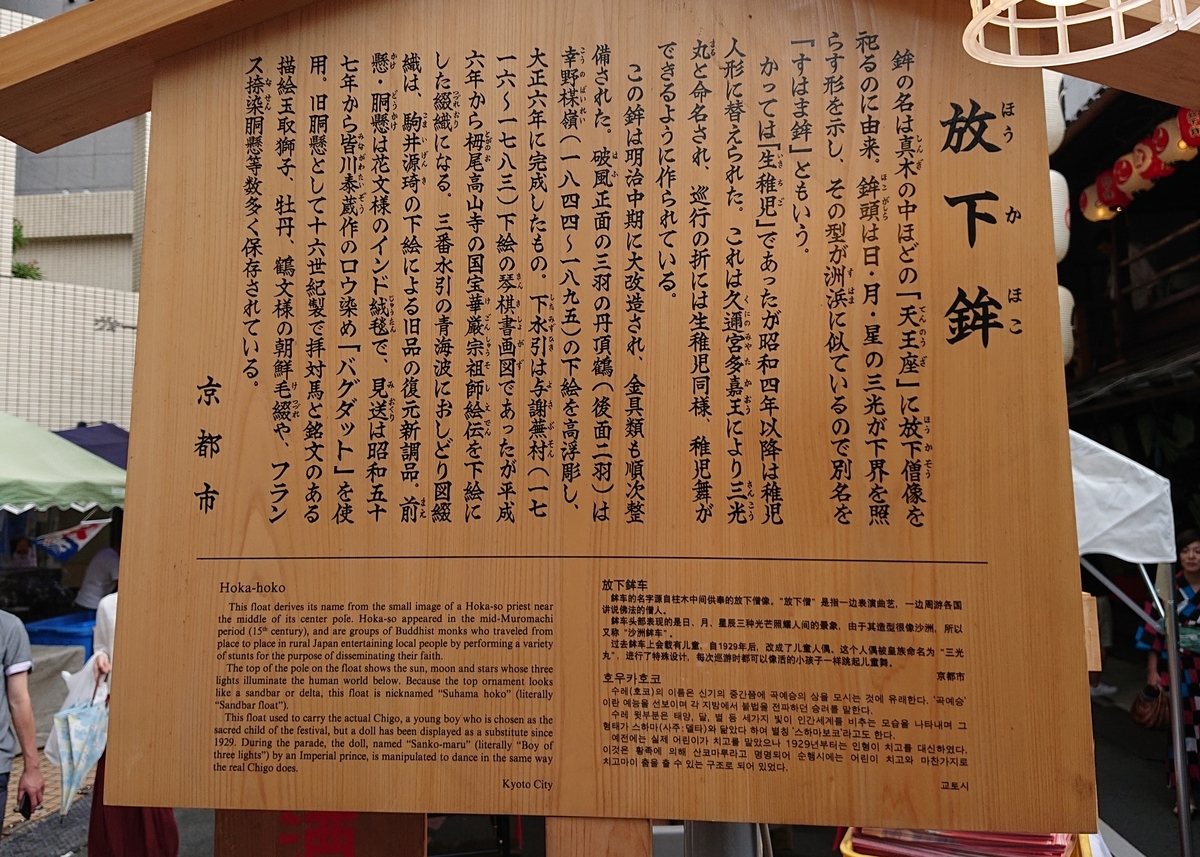 放下鉾
鉾の名は真木の中ほどの「天王座」に放下僧像を
祀るのに由来。鉾頭は日・月・星の三光が下界を照
らす形を示し、その型が洲浜に似ているので別名を
「すはま鉾」ともいう。
かつては「生稚児」であったが昭和四年以降は稚児
人形に替えられた。これは久邇宮多嘉王により三光
丸と命名され、巡行の折には生稚児同様、稚児舞が
できるように作られている。
この鉾は明治中期に大改造され、金具類も順次整
備された。破風正面の三羽の丹頂鶴(後面二羽)は
幸野楳嶺(一八四四～一八九五)の下絵を高浮彫し、
大正六年に完成したもの。下水引は与謝蕪村(一七
一六～一七八三)下絵の琴棋書画図であったが平成
六年から栂尾高山寺の国宝華厳宗祖師絵伝を下絵に
した綴織になる。三番水引の青海波におしどり図綴
織は、駒井源琦の下絵による旧品の復元新調品。前
懸・胴懸は花文様のインド絨毯で、見送は昭和五十
七年から皆川泰蔵作のロウ染め「バグダット」を使
用。旧胴懸として十六世紀製で拝対馬と銘文のある
描絵玉取獅子、牡丹、鶴文様の朝鮮毛綴や、フラン
ス捺染胴懸等数多く保存されている。
京都市
Hoka-hoko
This float derives its name from the small image of a Hoka-so priest near
the middle of its center pole. Hoka-so appeared in the mid-Muromachi
period (15th century), and are groups of Buddhist monks who traveled from
place to place in rural Japan entertaining local people by performing a variety
of stunts for the purpose of disseminating their faith.
The top of the pole on the float shows the sun, moon and stars whose three
lights illuminate the human world below. Because the top ornament looks
like a sandbar or delta, this float is nicknamed "Suhama hoko" (literally
"Sandbar float").
This float used to carry the actual Chigo, a young boy who is chosen as the
sacred child of the festival, but a doll has been displayed as a substitute since
1929. During the parade, the doll, named "Sanko-maru" (literally "Boy of
three lights") by an Imperial prince, is manipulated to dance in the same way
the real Chigo does.
Kyoto City
放下鉾车
鉾车的名字源自柱木中间供奉的放下僧像。"放下僧"是指一边表演曲艺，一边周游各国
讲说佛法的僧人。
鉾车头部表现的是日、月、星辰三种光芒照耀人间的景象，由于其造型很像沙洲，所以
又称"沙洲鉾车"。
过去鉾车上会载有儿童，自1929年后，改成了儿童人偶。这个人偶被皇族命名为"三光
丸"，进行了特殊设计，每次巡游时都可以像活的小孩子一样跳起儿童舞。
京都市
호우카호코
수레(호코)의 이름은 신기의 중간쯤에 곡예승의 상을 모시는 것에 유래한다. '곡예승'
이란 예능을 선보이며 각 지방에서 불법을 전파하던 승려를 말한다.
수레 윗부분은 태양, 달, 별 등 세가지 빛이 인간세계를 비추는 모습을 나타내며 그
형태가 스하마(사주:델타)와 닮았다 하여 별칭 '스하마보코'라고도 한다.
예전에는 실제 어린이가 치고를 맡았으나 1929년부터는 인형이 치고를 대신하였다.
이것은 황족에 의해 산코마루라고 명명되어 순행시에는 어린이 치고와 마찬가지로
치고마이 춤을 출 수 있는 구조로 되어 있었다.
교토시